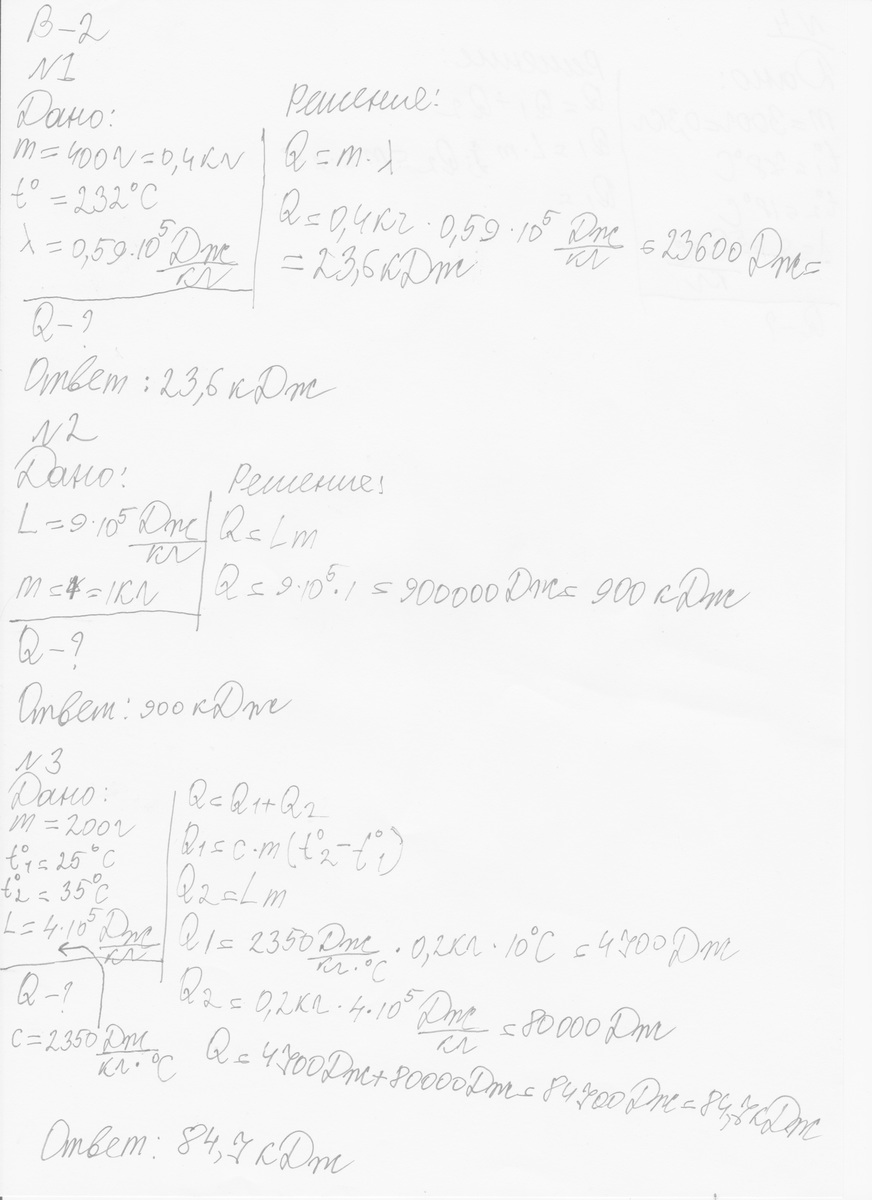 В-2
N1
Дано:
m=400г=0,4кг
t°=232°C
λ=0,59·10⁵ Дж/кг
Q-?
Решение:
Q=m·λ
Q=0,4кг·0,59·10⁵ Дж/кг=23600Дж=
=23,6кДж
Ответ: 23,6кДж
N2
Дано:
L=9·10⁵ Дж/кг
m= =1кг
Q-?
Решение:
Q=Lm
Q=9·10⁵·1=900000Дж=900кДж
Ответ: 900кДж
N3
Дано:
m=200г
t°1=25°C
t°2=35°C
L=4·10⁵ Дж/кг
Q-?
c=2350 Дж/кг·°C
Q=Q1+Q2
Q1=c·m(t°2-t°1)
Q2=Lm
Q1=2350 Дж/кг·°C·0,2кг·10°C=4700Дж
Q2=0,2кг·4·10⁵ Дж/кг=80000Дж
Q=4700Дж+80000Дж=84700Дж=84,7кДж
Ответ: 84,7кДж